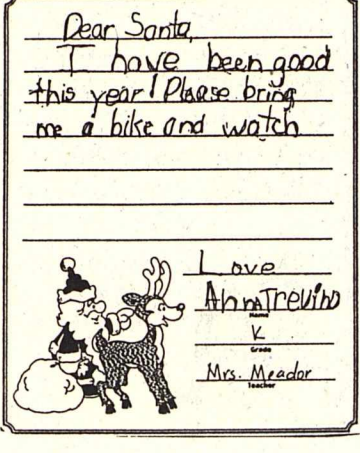 Dear Santa,
I have been good
this year! Please bring
me a bike and watch
Love
Anna Trevino
Name
K
Grade
Mrs. Meador
Teacher